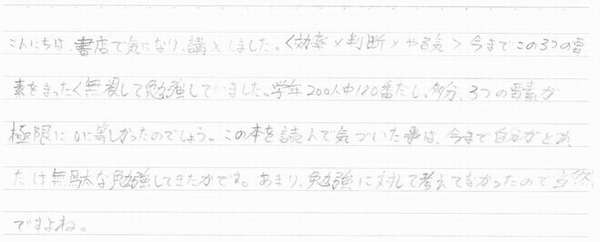 こんにちは、書店で気になり、購入しました。〈効率×判断×やる気〉今までこの3つの要
素をまったく無視して勉強していました。学年200人中180番だし、多分、3つの要素が
極限に0に等しかったのでしょう。この本を読んで気づいた事は、今まで自分がどれ
だけ無駄な勉強してきたかです。あまり、勉強に対して考えてなかったので当然
ですよね。